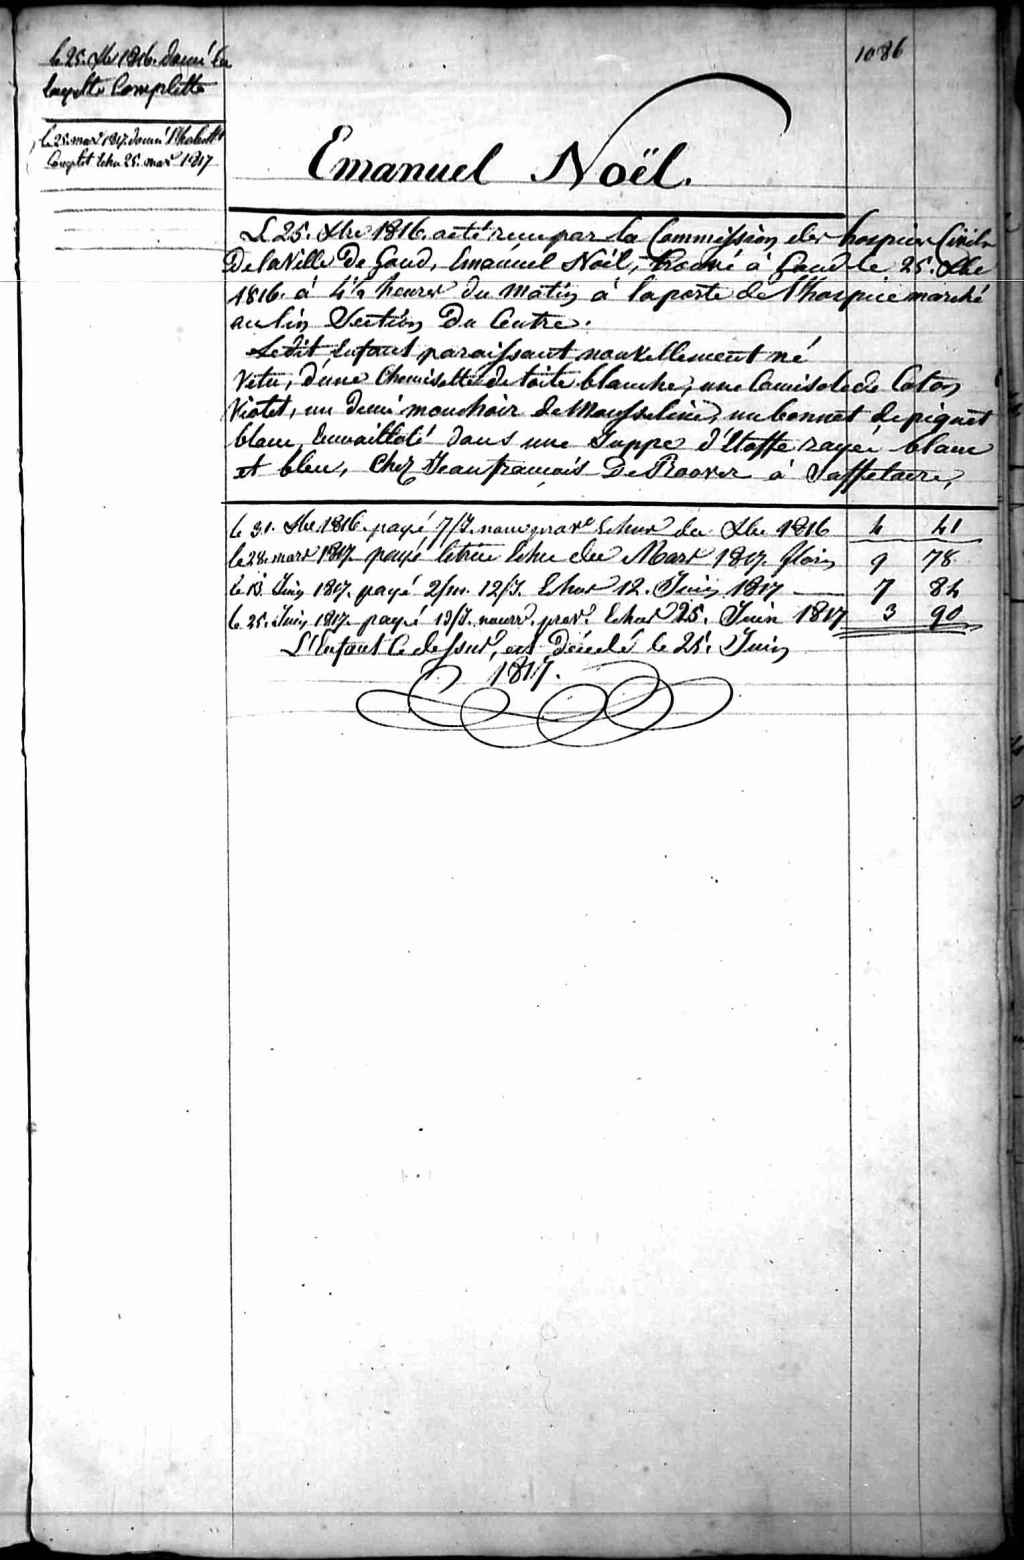 1086
le 25. Xbre 1816. donné la
layette Complette
le 25. mars 1817. donné l'habillt
Complet Echu 25. mars 1817
Emanuel Noël.
Le 25. Xbre 1816. a été recu par la Commission des hospices Civils
De la Ville De Gand, Emanuel Noël, trouvé à Gand le 25. Xbre
1816. à 4½ heures du matin à la porte de l'hospice marché
au lin Section Du Centre.
Ledit Enfant paraissant nouvellement né
Vetu, d'une Chemisette de toile blanche, une Camisole de Coton
Violet, un demi mouchoir de Mousseline, un bonnet de piquet
blanc, Emmailloté dans une Juppe d'Etoffe rayée blanc
et bleu, Chez Jean francois De Roover à Saffelaere,
le 31. Xbre 1816. payé 7/J. Echus du Xbre 1816 4 41
le 28. mars 1817. payé Echu du Mars 1817. florins 9 78
le 13. Juin 1817. payé 2/m. 12/J. Echus 12. Juin 1817 7 82
le 25. Juin 1817. payé 13/J. nourr. Echus 25. Juin 1817 3 90
L'Enfant Ci dessus, est Décédé le 25. Juin
1817.